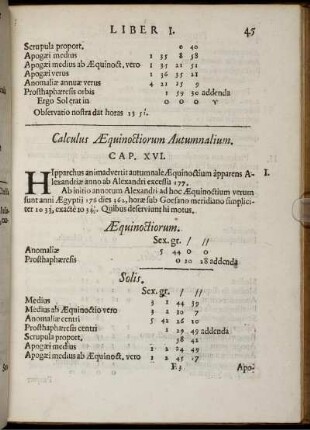 LIBER I. 45
Scrupula proport. 0 40
Apogæi medius 1 35 8 58
Apogæi medius ab Æquinoct. vero 1 35 21 51
Apogæi verus 1 36 35 21
Anomaliæ annuæ verus 4 23 25 9
Prosthaphæresis orbis 1 59 30 addenda
Ergo Sol erat in 0 0 0 ♈
Observatio nostra dat horas 23 51.
Calculus Æquinoctiorum Autumnalium.
CAP. XVI.
HIpparchus animadvertit autumnale Æquinoctium apparens A- I.
lexandriæ anno ab Alexandri excessu 177.
Ab initio annorum Alexandri ad hoc Æquinoctium verum
sunt anni Ægyptii 176 dies 362, horæ sub Goesano meridiano simplici-
ter 10 33, exactè 10 36. Quibus deserviunt hi motus.
Æquinoctiorum.
Sex. gr. / //
Anomaliæ 5 44 0 0
Prosthaphæresis 0 20 28 addenda
Solis.
Sex. gr. / //
Medius 3 2 44 39
Medius ab Æquinoctio vero 3 2 24 10
Anomaliæ centri 5 42 26 10
Prosthaphæresis centri 1 29 49 addenda
Scrupula proport. 58 42
Apogæi medius 1 2 24 49
Apogæi medius ab Æquinoct. vero 1 2 45 17
F 3 Apo-